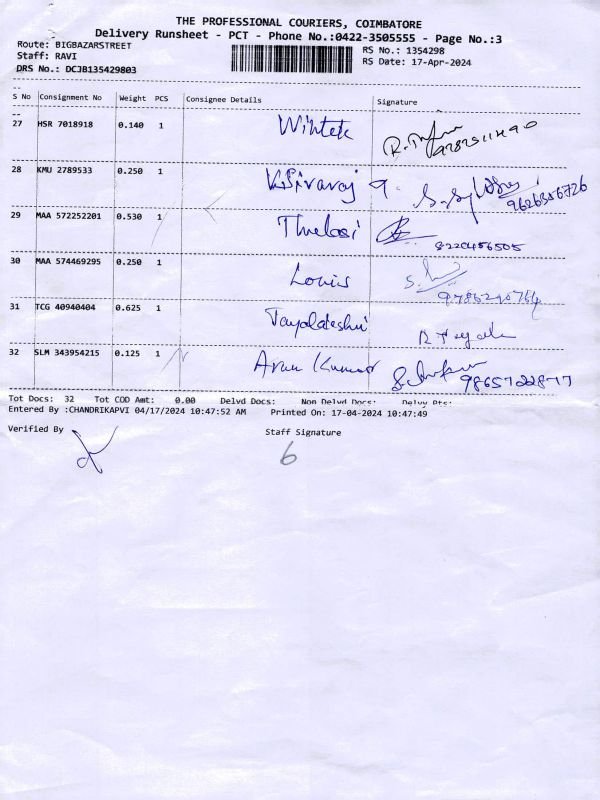 THE PROFESSIONAL COURIERS, COIMBATORE
Delivery Runsheet - PCT - Phone No.:0422-3505555 - Page No.:3
Route: BIGBAZARSTREET
RS No.: 1354298
Staff: RAVI
RS Date: 17-Apr-2024
DRS No.: DCJB135429803
S No Consignment No Weight PCS Consignee Details Signature
27 HSR 7018918 0.140 1 Wintek
28 KMU 2789533 0.250 1 K.Sivaraj
9626356726
29 MAA 572252201 0.530 1 Thulasi
8220456505
30 MAA 574469295 0.250 1 Louis
31 TCG 40940404 0.625 1
32 SLM 343954215 0.125 1 Arun Kumar
9865722877
Tot Docs: 32 Tot COD Amt: 0.00 Delvd Docs: Non Delvd Docs: Delvy Pts:
Entered By :CHANDRIKAPVI 04/17/2024 10:47:52 AM Printed On: 17-04-2024 10:47:49
Verified By Staff Signature
6